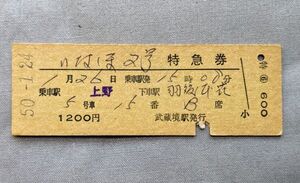 いなほ2号 特急券
1月26日 乗車駅発15時08分
乗車駅 上野 下車駅 羽後本荘
5号車 15番 B席
1200円 武蔵境駅発行
50.-1.24
特 ⑥ 600
小